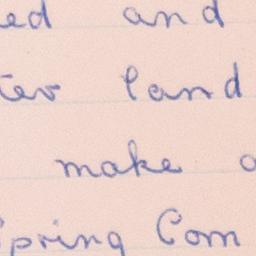 ed and
ter land
make a
Spring Com